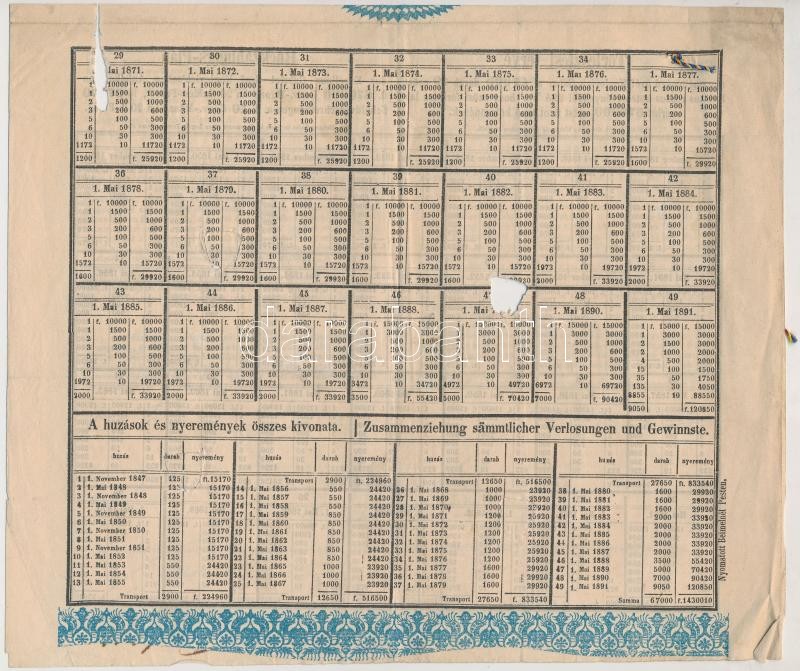 29 30 31 32 33 34
Mai 1871. 1. Mai 1872. 1. Mai 1873. 1. Mai 1874. 1. Mai 1875. 1. Mai 1876. 1. Mai 1877.
1 f. 10000 f. 10000 1 f. 10000 f. 10000 1 f. 10000 f. 10000 1 f. 10000 f. 10000 1 f. 10000 f. 10000 1 f. 10000 f. 10000 1 f. 10000 f. 10000
1 1500 1500 1 1500 1500 1 1500 1500 1 1500 1500 1 1500 1500 1 1500 1500 1 1500 1500
2 500 1000 2 500 1000 2 500 1000 2 500 1000 2 500 1000 2 500 1000 2 500 1000
3 200 600 3 200 600 3 200 600 3 200 600 3 200 600 3 200 600 3 200 600
5 100 500 5 100 500 5 100 500 5 100 500 5 100 500 5 100 500 5 100 500
6 50 300 6 50 300 6 50 300 6 50 300 6 50 300 6 50 300 6 50 300
10 30 300 10 30 300 10 30 300 10 30 300 10 30 300 10 30 300 10 30 300
1172 10 11720 1172 10 11720 1172 10 11720 1172 10 11720 1172 10 11720 1172 10 11720 10
1200 f. 25920 1200 f. 25920 1200 f. 25920 1200 f. 25920 1200 f. 25920 1200 f. 25920 1600 f. 29920
36 37 38 39 40 41 42
1. Mai 1878. 1. Mai 1879. 1. Mai 1880. 1. Mai 1881. 1. Mai 1882. 1. Mai 1883. 1. Mai 1884.
1 f. 10000 f. 10000 1 f. 10000 f. 10000 1 f. 10000 f. 10000 1 f. 10000 f. 10000 1 f. 10000 f. 10000 1 f. 10000 f. 10000 1 f. 10000 f. 10000
1 1500 1500 1 1500 1500 1 1500 1500 1 1500 1500 1 1500 1500 1 1500 1500 1 1500 1500
2 500 1000 2 500 1000 2 500 1000 2 500 1000 2 500 1000 2 500 1000 2 500 1000
3 200 600 3 200 600 3 200 600 3 200 600 3 200 600 3 200 600 3 200 600
5 100 500 5 100 500 5 100 500 5 100 500 5 100 500 5 100 500 5 100 500
6 50 300 6 50 300 6 50 300 6 50 300 6 50 300 6 50 300 6 50 300
10 30 300 10 30 300 10 30 300 10 30 300 10 30 300 10 30 300 10 30 300
1572 10 15720 1572 10 15720 1572 10 15720 1572 10 15720 1572 10 15720 1972 10 19720 1972 10 19720
1600 f. 29920 1600 f. 29920 1600 f. 29920 1600 f. 29920 1600 2000 f. 33920 2000 f. 33920
43 44 45 46 48 49
1. Mai 1885. 1. Mai 1886. 1. Mai 1887. 1. Mai 1888. 1. Mai 1. Mai 1890. 1. Mai 1891.
1 f. 10000 f. 10000 1 f. 10000 f. 10000 1 f. 10000 f. 10000 1 f. 10000 f. 10000 1 f. 10000 1 f. 15000 f. 15000 1 f. 15000 f. 15000
1 1500 1500 1 1500 1500 1 1500 1500 1 3000 3000 1 3000 1 3000 3000 1 3000 3000
2 500 1000 2 500 1000 2 500 1000 2 1000 2 1000 2000
3 200 600 3 200 600 3 200 600 600 4 500 2000
5 100 500 5 100 500 5 100 500 15 100 1500
6 50 300 6 50 300 6 50 300 35 50 1750
10 30 300 10 30 300 10 30 300 10 30 300 10 30 300 10 30 300 135 30 4050
1972 10 19720 1972 10 19720 1972 10 19720 3472 10 34720 10 49720 6972 10 69720 8855 10 88550
2000 f. 33920 2000 f. 33920 2000 f. 33920 3500 f. 55420 5000 f. 70420 7000 f. 90420 9050 f. 120850
A huzások és nyeremények összes kivonata. | Zusammenziehung sämmtlicher Verlosungen und Gewinnste.
huzás darab nyeremény huzás darab nyeremény huzás darab nyeremény huzás darab nyeremény
1 1. November 1847 125 ft. 15170
2 1. Mai 1848 125 15170
3 1. November 1848 125 15170
4 1. Mai 1849 125 15170
5 1. November 1849 125 15170
6 1. Mai 1850 125 15170
7 1. November 1850 125 15170
8 1. Mai 1851 125 15170
9 1. November 1851 125 15170
10 1. Mai 1852 125 15170
11 1. Mai 1853 550 24420
12 1. Mai 1854 550 24420
13 1. Mai 1855 550 24420
Transport 2900 f. 224960
Transport 2900 ft. 224960
14 1. Mai 1856 550 24420
15 1. Mai 1857 550 24420
16 1. Mai 1858 550 24420
17 1. Mai 1859 850 24420
18 1. Mai 1860 850 24420
19 1. Mai 1861 850 24420
20 1. Mai 1862 850 24420
21 1. Mai 1863 850 24420
22 1. Mai 1864 850 24420
23 1. Mai 1865 1000 24420
24 1. Mai 1866 1000 23920
25 1. Mai 1867 1000 23920
Transport 12650 f. 516500
Transport 12650 ft. 516500
26 1. Mai 1868 1000 23920
27 1. Mai 1869 1000 23920
28 1. Mai 1870 1000 23920
29 1. Mai 1871 1200 25920
30 1. Mai 1872 1200 25920
31 1. Mai 1873 1200 25920
32 1. Mai 1874 1200 25920
33 1. Mai 1875 1200 25920
34 1. Mai 1876 1200 25920
35 1. Mai 1877 1600 29920
36 1. Mai 1878 1600 29920
37 1. Mai 1879 1600 29920
Transport 27650 f. 833540
Transport 27650 ft. 833540
38 1. Mai 1880 1600 29920
39 1. Mai 1881 1600 29920
40 1. Mai 1882 1600 29920
41 1. Mai 1883 2000 33920
42 1. Mai 1884 2000 33920
43 1. Mai 1885 2000 33920
44 1. Mai 1886 2000 33920
45 1. Mai 1887 2000 33920
46 1. Mai 1888 3500 55420
47 1. Mai 1889 5000 70420
48 1. Mai 1890 7000 90420
49 1. Mai 1891 9050 120850
Summa 67000 f. 1430010
Nyomatott Beimelnél Pesten.
darabanth